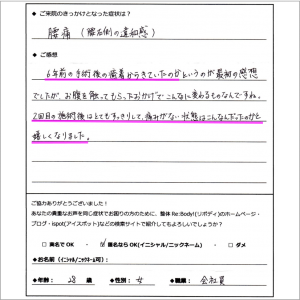 ◆ ご来院のきっかけとなった症状は？
腰痛（腰左側の違和感）
◆ ご感想
6年前の手術後の癒着からきていたのかというのが最初の感想
でしたが、お腹を触ってもらったおかげでこんなに変わるものなんですね。
2回目の施術後はとてもすっきりして、痛みがない状態はこんなんだったのかと
嬉しくなりました。
ご協力ありがとうございました！
あなたの貴重なお声を同じ症状でお困りの方のために、整体 Re:Body!(リボディ)のホームページ・
ブログ・ispot(アイスポット)などの検索サイトで紹介してもよろしいでしょうか？
□ 実名でOK ・ 匿名ならOK(イニシャル/ニックネーム) ・ □ ダメ
◆お名前（イニシャル/ニックネーム可）：
◆年齢： 28 歳 ◆性別： 女 ◆職業： 会社員